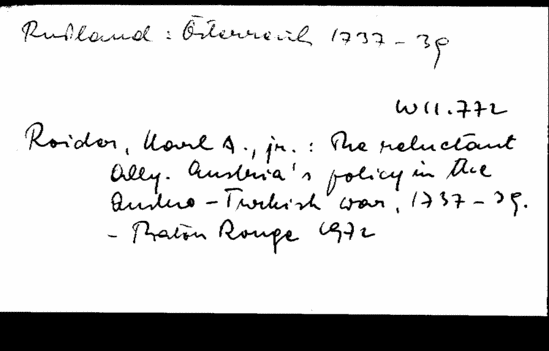 Rußland : Österreich 1737-39
W11.772
Roider, Karl A., jr. : The reluctant
Ally. Austria's policy in the
Austro-Turkish war, 1737-39.
- Baton Rouge 1972